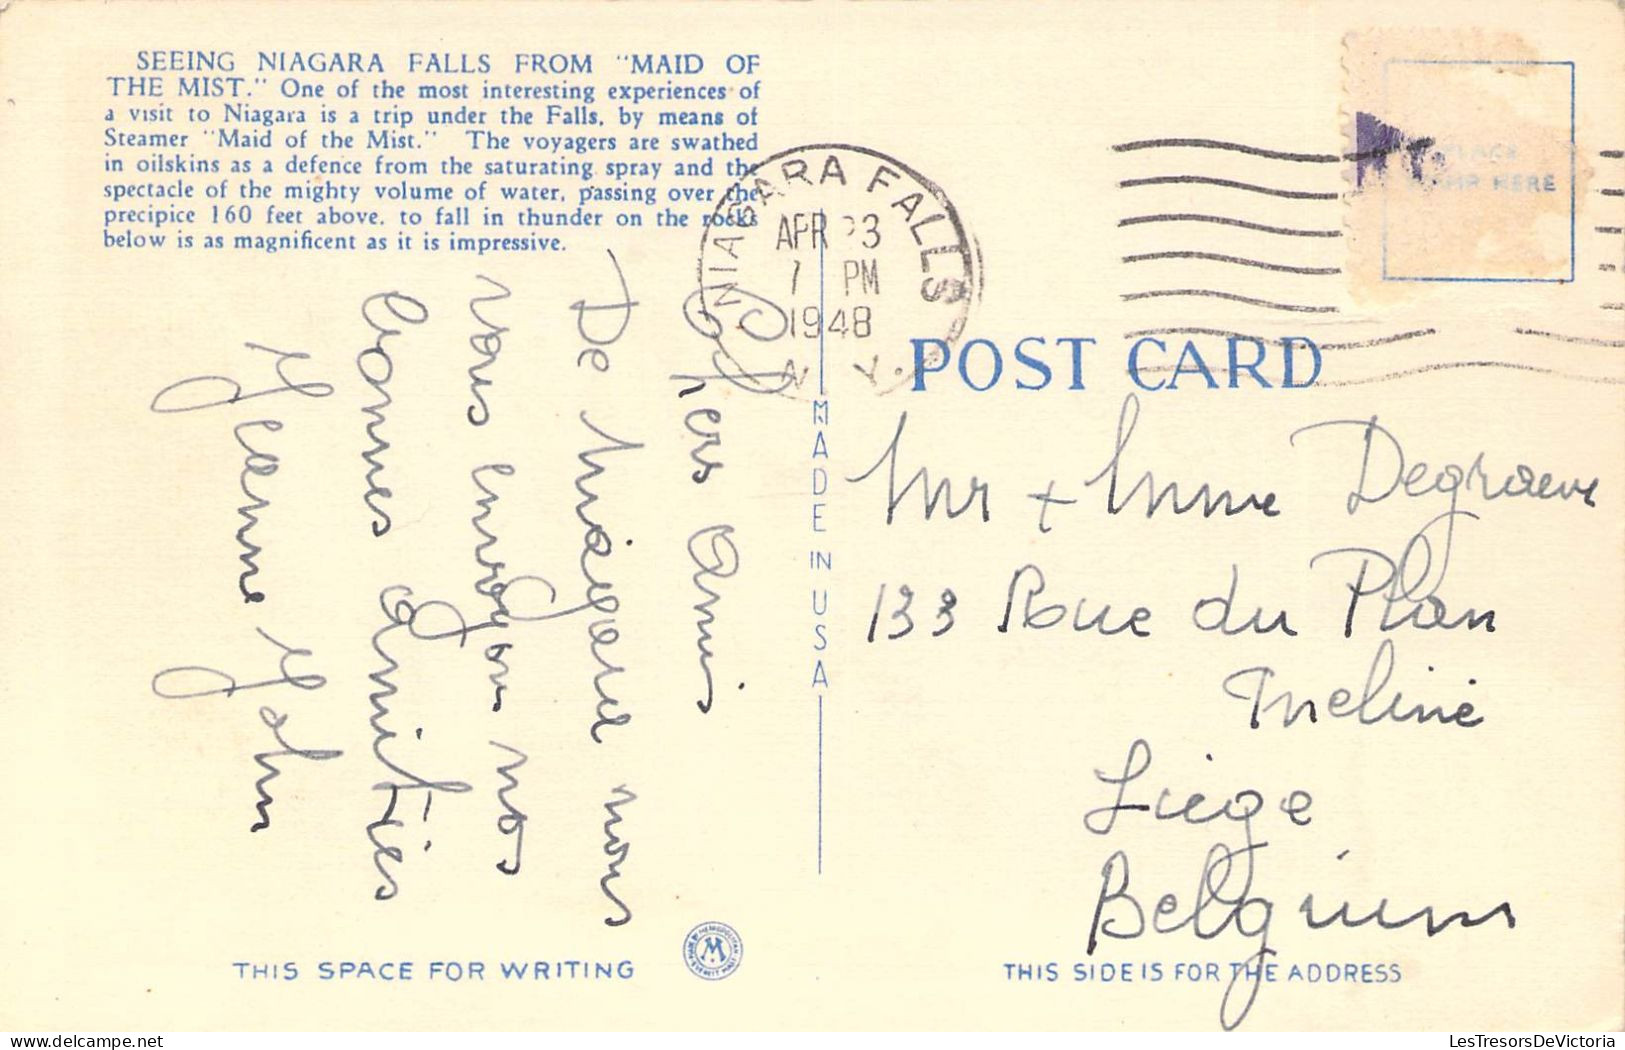 SEEING NIAGARA FALLS FROM "MAID OF
THE MIST." One of the most interesting experiences of
a visit to Niagara is a trip under the Falls, by means of
Steamer "Maid of the Mist." The voyagers are swathed
in oilskins as a defence from the saturating spray and the
spectacle of the mighty volume of water, passing over the
precipice 160 feet above, to fall in thunder on the rocks
below is as magnificent as it is impressive.
NIAGARA FALLS
APR 23
PM
1948
N. Y.
PLACE
STAMP HERE
POST CARD
MADE IN USA
Chers Amis
De Niagara nous
vous envoyons nos
bonnes amitiés
Jeanne John
Mr + Mme Degraeve
133 Rue du Plan
Incliné
Liège
Belgium
THIS SPACE FOR WRITING
M
THIS SIDE IS FOR THE ADDRESS
LesTresorsDeVictoria